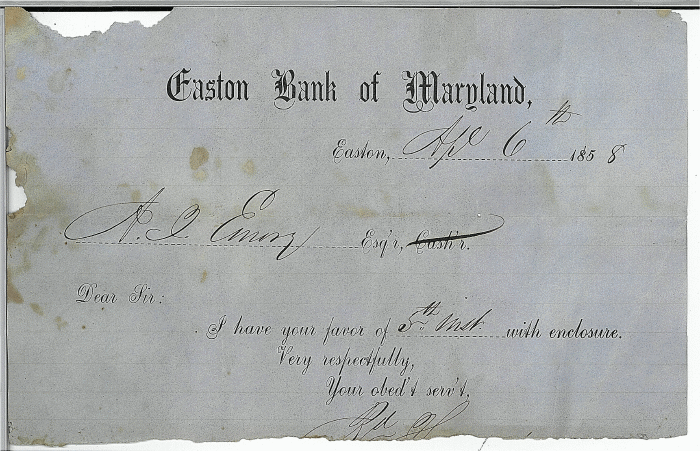 Easton Bank of Maryland,
Easton, Apl 6th 1858
A. J. Emory Esq'r, Cash'r.
Dear Sir:
I have your favor of 5th inst. with enclosure.
Very respectfully,
Your obed't serv't,